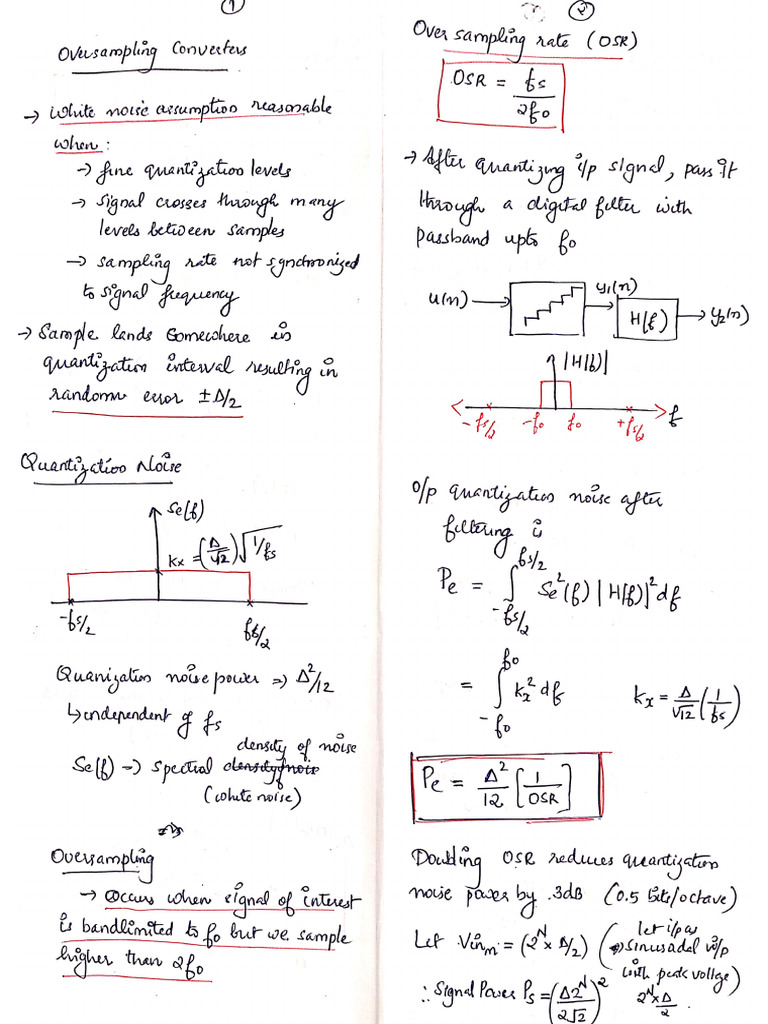 1
Oversampling Converters
→ White noise assumption reasonable
when:
→ fine quantization levels
→ signal crosses through many
levels between samples
→ sampling rate not synchronized
to signal frequency
→ Sample lands somewhere in
quantization interval resulting in
random error ±Δ/2
Quantization Noise
Se(f)
kx = (Δ/√12) √1/fs
-fs/2
fs/2
Quanization noise power ⇒ Δ²/12
↳ independent of fs
density of noise
Se(f) → Spectral
(white noise)
Oversampling
→ Occurs when signal of interest
is bandlimited to fo but we sample
higher than 2fo
2
Over sampling rate (OSR)
OSR = fs/2fo
→ After quantizing i/p signal, pass it
through a digital filter with
passband upto fo
u(n) → y1(n) H(f) → y2(n)
|H(f)|
-fs/2 -fo fo +fs/2 f
O/p quantization noise after
filtering is
Pe = ∫_{-fs/2}^{fs/2} Se²(f) |H(f)|² df
= ∫_{-fo}^{fo} kx² df kx = Δ/√12 (1/fs)
Pe = Δ²/12 [1/OSR]
Doubling OSR reduces quantization
noise power by 3dB (0.5 bits/octave)
Let Vinm = (2^N × Δ/2) (let i/p as
sinusodal i/p
with peak voltge)
2^N × Δ/2
∴ Signal Power Ps = (Δ2^N/2√2)²